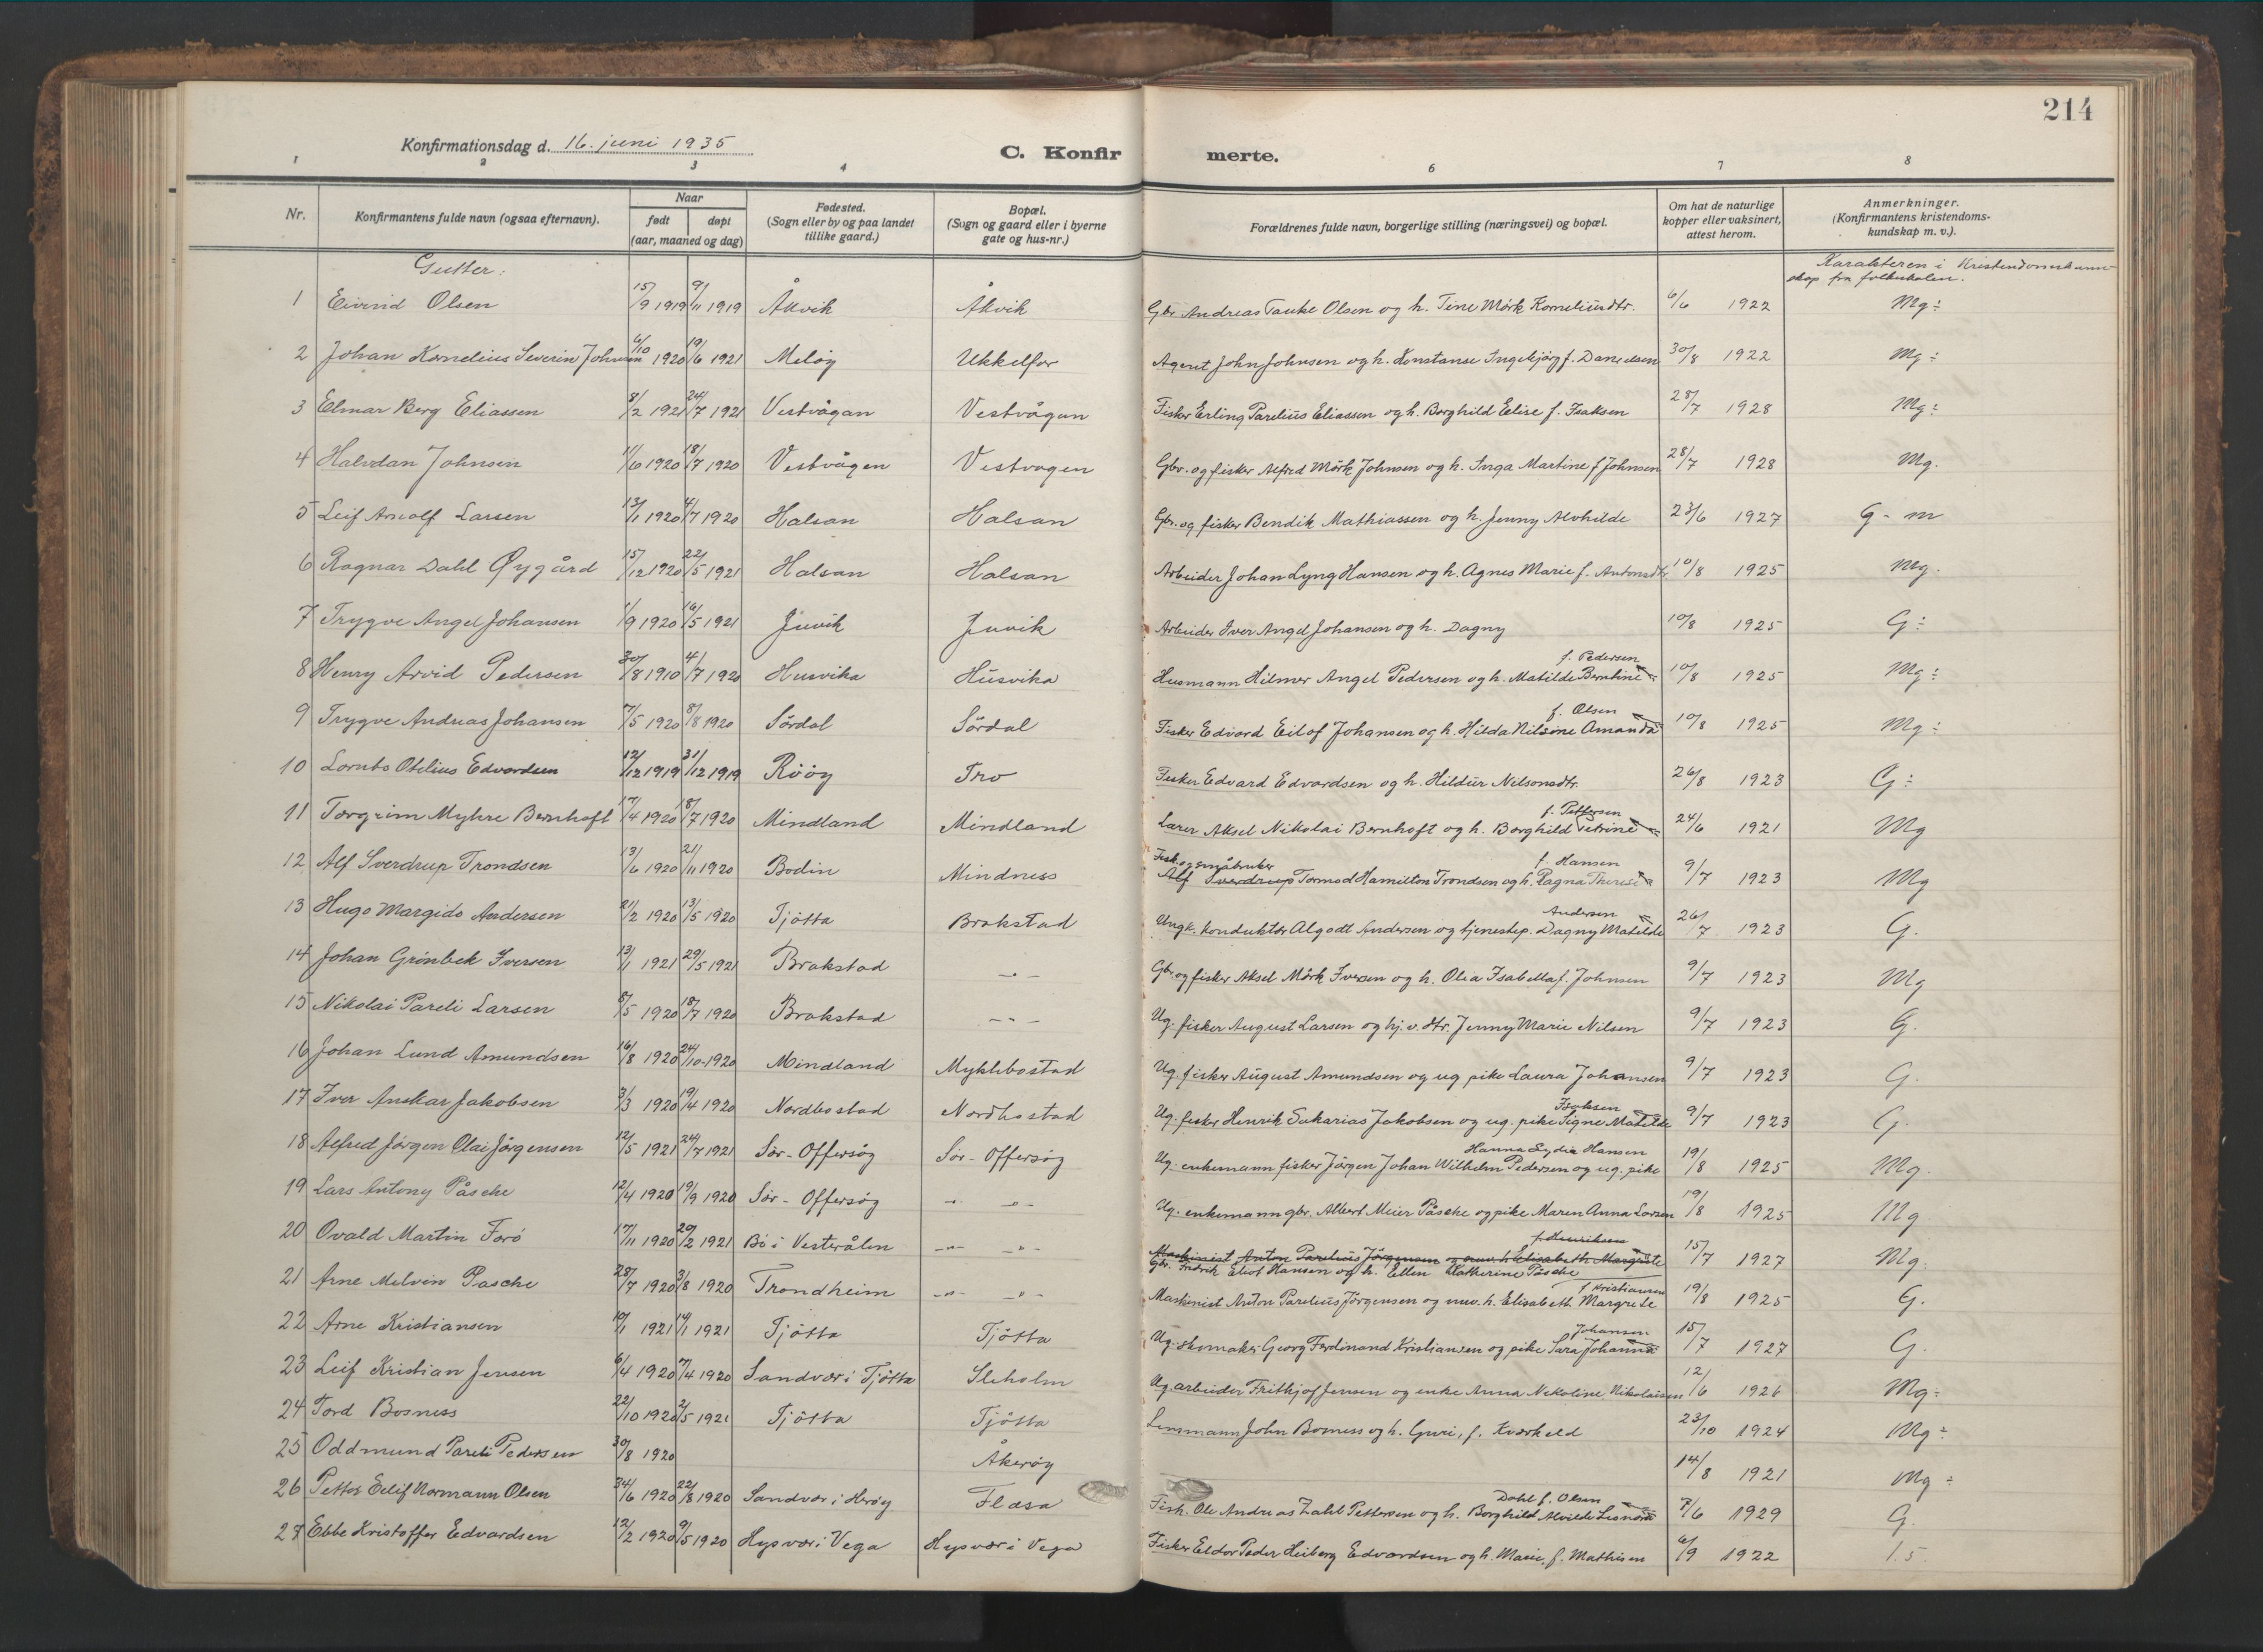 214
Konfirmationsdag d. 16. juni 1935
C. Konfirmerte.
1 2 3 4 6 7 8
Nr. Konfirmantens fulde navn (ogsaa efternavn). Naar født døpt (aar, maaned og dag) Fødested. (Sogn eller by og paa landet tillike gaard.) Bopæl. (Sogn og gaard eller i byerne gate og hus-nr.) Forældrenes fulde navn, borgerlige stilling (næringsvei) og bopæl. Om hat de naturlige kopper eller vaksinert, attest herom. Anmerkninger. (Konfirmantens kristendomskundskap m. v.).
Gutter:
Karakteren i Kristendomskunnskap fra folkeskolen.
1 Eivind Olsen 15/9 1919 9/11 1919 Åkvik Åkvik Gbr. Andreas Tauke Olsen og h. Tine Mörk Korneliusdtr. 6/6 1922 Mg÷
2 Johan Kornelius Severin Johnsen 6/10 1920 19/6 1921 Meløy Ukkelfor Agent John Johnsen og h. Konstanse Ingebjörg f. Danielsen 30/8 1922 Mg÷
3 Elmar Berg Eliassen 8/2 1921 24/7 1921 Vestvågan Vestvågan Fisker Erling Parelius Eliassen og h. Borghild Elise f. Isaksen 28/7 1928 Mg÷
4 Halvdan Johnsen 11/6 1920 18/7 1920 Vestvågen Vestvagen Gbr. og fisker Alfred Mörk Johnsen og h. Inga Martine f Johnsen 28/7 1928 Mg.
5 Leif Arnolf Larsen 13/1 1920 4/7 1920 Halsan Halsan Gbr. og fisker Bendik Mathiassen og h. Jenny Alvhilde 23/6 1927 G - m
6 Ragnar Dahl Øygård 15/12 1920 22/5 1921 Halsan Halsan Arbeider Johan Lyng Hansen og h. Agnes Marie f. Antonsdtr 10/8 1925 Mg.
7 Trygve Angel Johansen 1/9 1920 16/5 1921 Juvik Juvik Arbeider Iver Angel Johansen og h. Dagny 10/8 1925 G÷
8 Henry Arvid Pedersen 30/8 1910 4/7 1920 Husvika Husvika Husmann Hilmer Angel Pedersen og h. Matilde Berntine f. Pedersen 10/8 1925 Mg÷
9 Trygve Andreas Johansen 7/5 1920 8/8 1920 Sördal Sördal Fisker Edvard Eilof Johansen og h. Hilda Nilsine Amanda f. Olsen 10/8 1925 Mg÷
10 Lornts Otelius Edvardsen 12/12 1919 31/12 1919 Rööy Tro Fisker Edvard Edvardsen og h. Hildur Nelsonsdtr. 26/8 1923 G÷
11 Torgrim Myhre Bernhoft 17/4 1920 18/7 1920 Mindland Mindland Lærer Aksel Nikolai Bernhoft og h. Borghild Petrine f. Pettersen 24/6 1921 Mg
12 Alf Sverdrup Trondsen 13/6 1920 21/11 1920 Bodin Mindness Fisk. og småbruker Alf Sverdrup Tormod Hamilton Trondsen og h. Ragna Therese f. Hansen 9/7 1923 Mg
13 Hugo Margido Andersen 21/2 1920 13/5 1920 Tjötta Brakstad Ungk. konduktør Algodt Andersen og tjenestep. Dagny Matilde Andersen 26/7 1923 G.
14 Johan Grönbek Iversen 13/1 1921 29/5 1921 Brakstad -"- Gbr. og fisker Aksel Mörk Iversen og h. Olea Isabella f. Johnsen 9/7 1923 Mg
15 Nikolai Pareli Larsen 8/5 1920 18/7 1920 Brakstad -"- Ug. fisker August Larsen og hj. v. dtr. Jenny Marie Nilsen 9/7 1923 G.
16 Johan Lund Amundsen 16/8 1920 24/10-1920 Mindland Myklebostad Ug. fisker August Amundsen og ug pike Laura Johansen 9/7 1923 G.
17 Iver Anskar Jakobsen 3/3 1920 19/4 1920 Nordbostad Nordbostad Ug. fisker Henrik Sakarias Jakobsen og ug. pike Signe Matilde Isaksen 9/7 1923 G.
18 Alfred Jörgen Olai Jörgensen 12/5 1921 24/7 1921 Sør-Offersøy Sör-Offersøy Ug. enkemann fisker Jörgen Johan Wilhelm Pedersen og ug. pike Hanna Lydia Hansen 19/8 1925 Mg.
19 Lars Antony Påsche 12/4 1920 19/9 1920 Sör-Offersöy -"- -"- Ug. enkemann gbr. Albert Meier Påsche og pike Maren Anna Larsen 19/8 1925 Mg
20 Ovald Martin Forö 17/11 1920 20/2 1921 Bö i Vesterålen -"- -"- Maskinist Anton Parelius Jörgensen og nuv. h. Elisabeth Margrete f. Henriksen
Gbr. Fredrik Eliot Hansen og h. Ellen Katherine Påsche 15/7 1927 Mg.
21 Arne Melvin Pasche 28/7 1920 3/8 1920 Trondheim -"- -"- Maskinist Anton Parelius Jörgensen og nuv. h. Elisabeth Margrete f Kristiansen 19/8 1925 G.
22 Arne Kristiansen 10/1 1921 14/1 1921 Tjötta Tjötta Ug. skomaker Georg Ferdinand Kristiansen og pike Sara Johanna Johansen 15/7 1927 G.
23 Leif Kristian Jensen 6/4 1920 7/4 1920 Sandvær i Tjötta Sleholm Ug. arbeider Frithjof Jensen og enke Anna Nekoline Nikolaisen 12/6 1926 Mg÷
24 Tord Bosness 22/10 1920 2/5 1921 Tjötta Tjötta Lensmann John Bosness og h. Guri, f. Kværkeld 23/10 1924 Mg÷
25 Oddmund Pareli Pedersen 30/8 1920 Åkerøy 14/8 1921 Mg÷
26 Petter Eilif Normann Olsen 24/6 1920 22/8 1920 Sandvær i Herøy Flæsa Fisk. Ole Andreas Zahl Pettersen og h. Borghild Alvilde Dahl f. Olsen 7/6 1929 G.
27 Ebbe Kristoffer Edvardsen 12/2 1920 9/5 1920 Hysvær i Vega Hysvær i Vega Fisker Eldor Peder Heiberg Edvardsen og h. Marie, f. Mathisen 6/9 1922 1.5.